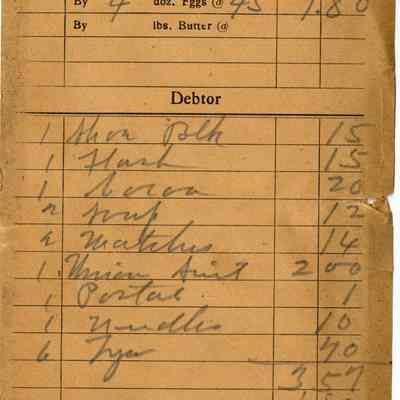 By 4 doz. Eggs @ 45 1.80
By lbs. Butter @
Debtor
1 Shoe Polh 15
1 Flash 15
1 Cocoa 20
2 Soup 12
2 Matches 14
1 Union Suit 2 00
1 Postal 1
1 Needles 10
6 70
3 57